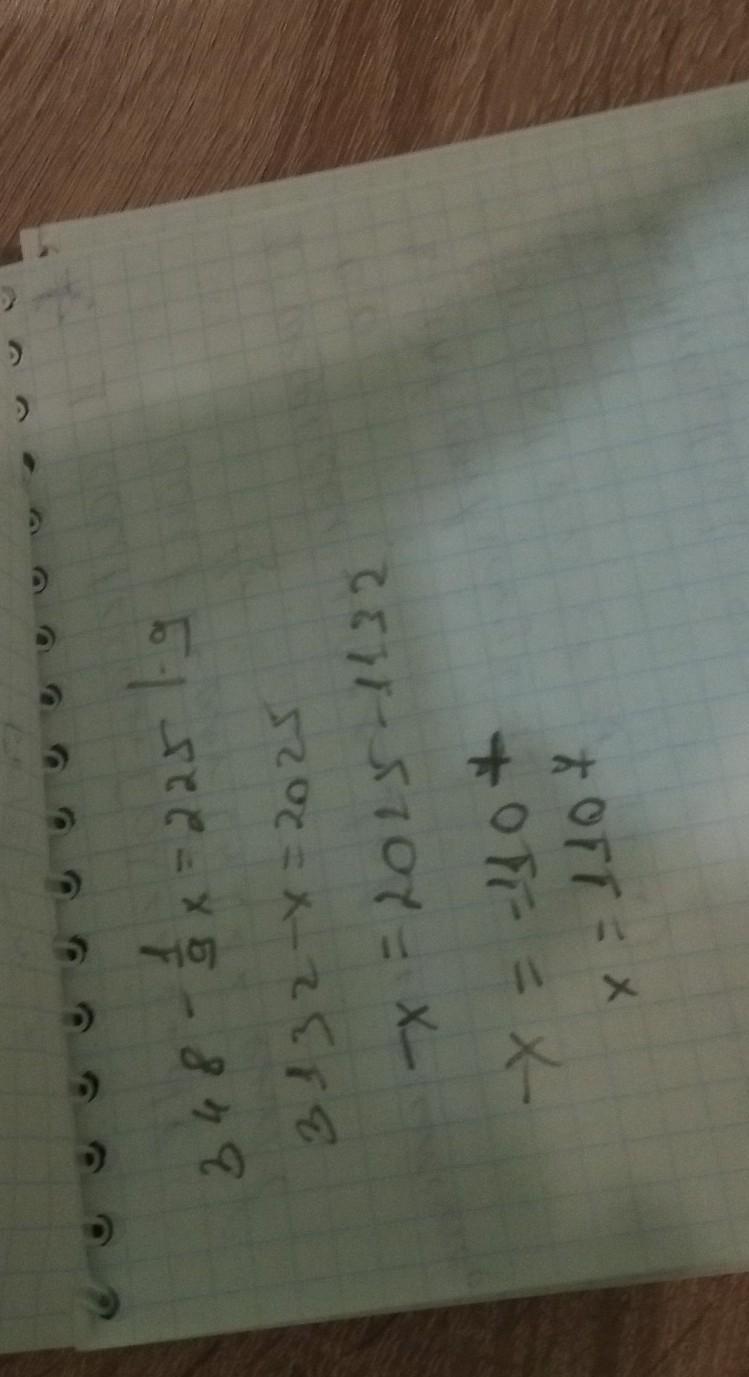 348 - 1/9 x = 225 | · 9
3132 - x = 2025
-x = 2025 - 1132
-x = -1107
x = 1107